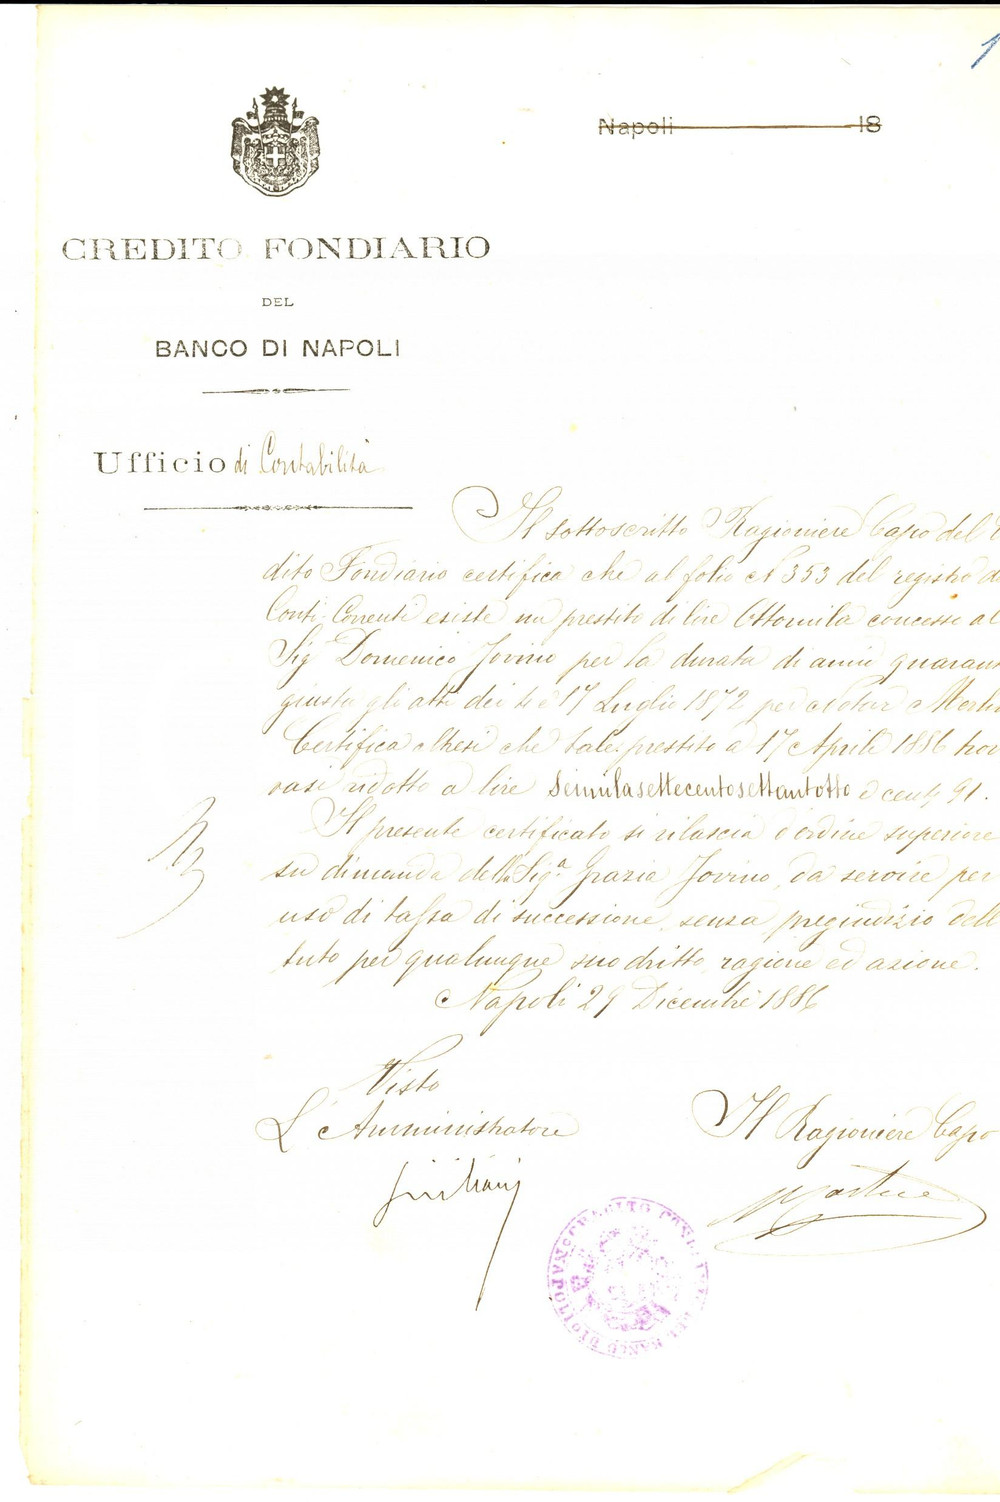 Napoli 18
CREDITO FONDIARIO
DEL
BANCO DI NAPOLI
Ufficio di Contabilità
Il sottoscritto Ragioniere Capo del C
dito Fondiario certifica che al folio N 353 del registro d
Conti Correnti esiste un prestito di lire Ottomila concesso al
Sigr Domenico Jovino per la durata di anni quaran
giusta gli atti dei 4 e 17 Luglio 1872 per Notar Merli
Certifica altresì che tale prestito a 17 Aprile 1886 trov
vasi ridotto a lire Seimilasettecentosettantotto e cent. 91.
Il presente certificato si rilascia d'ordine superiore
su dimanda della Sig.a Grazia Jovino, da servire per
uso di tassa di successione, senza pregiudizio dell
tuto per qualunque suo dritto, ragione ed azione.
Napoli 29 Dicembre 1886
Visto
L'Amministratore
Il Ragioniere Capo
Giuliani
CREDITO FONDIARIO DEL BANCO DI NAPOLI